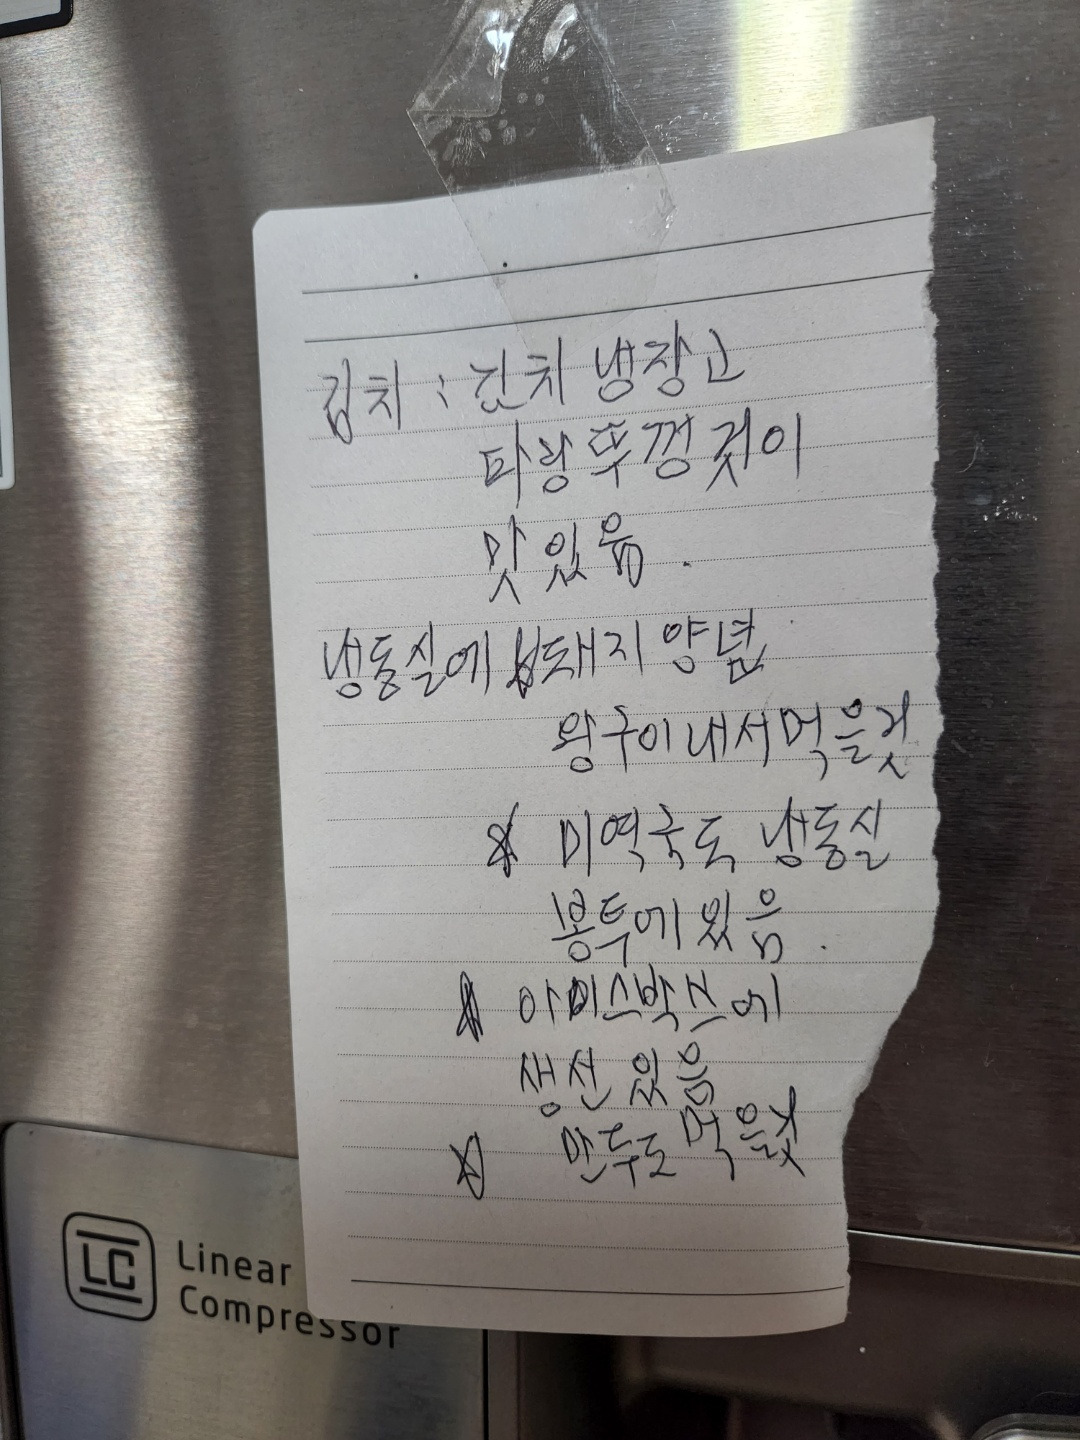 김치 : 김치 냉장고
파랑 뚜껑 것이
맛있음.
냉동실에 돼지 양념
왕구이 내서 먹을것
☆ 미역국도 냉동실
봉투에 있음.
☆ 아이스박스에
생선 있음
☆ 만두도 먹을것
LC Linear
Compressor